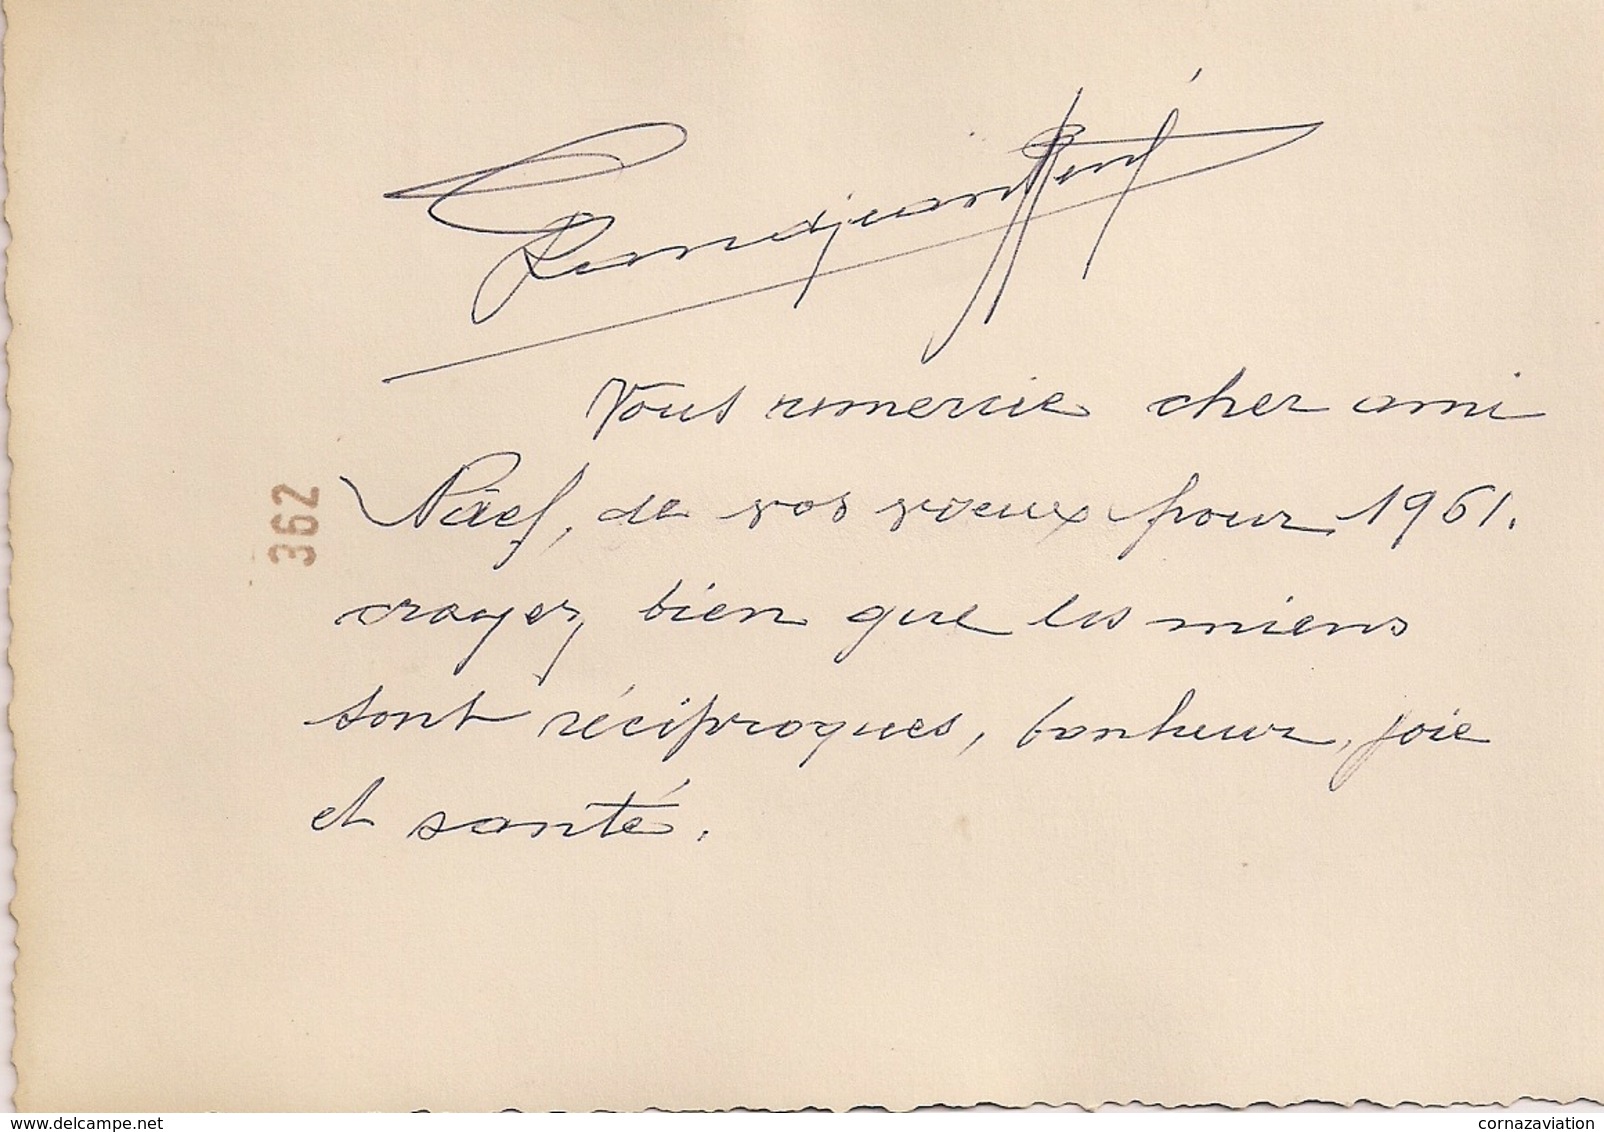 Grandjean René
Vous remercie cher ami
Näef, de vos voeux pour 1961.
croyez bien que les miens
sont réciproques, bonheur, joie
et santé.
362
delcampe.net
cornazaviation